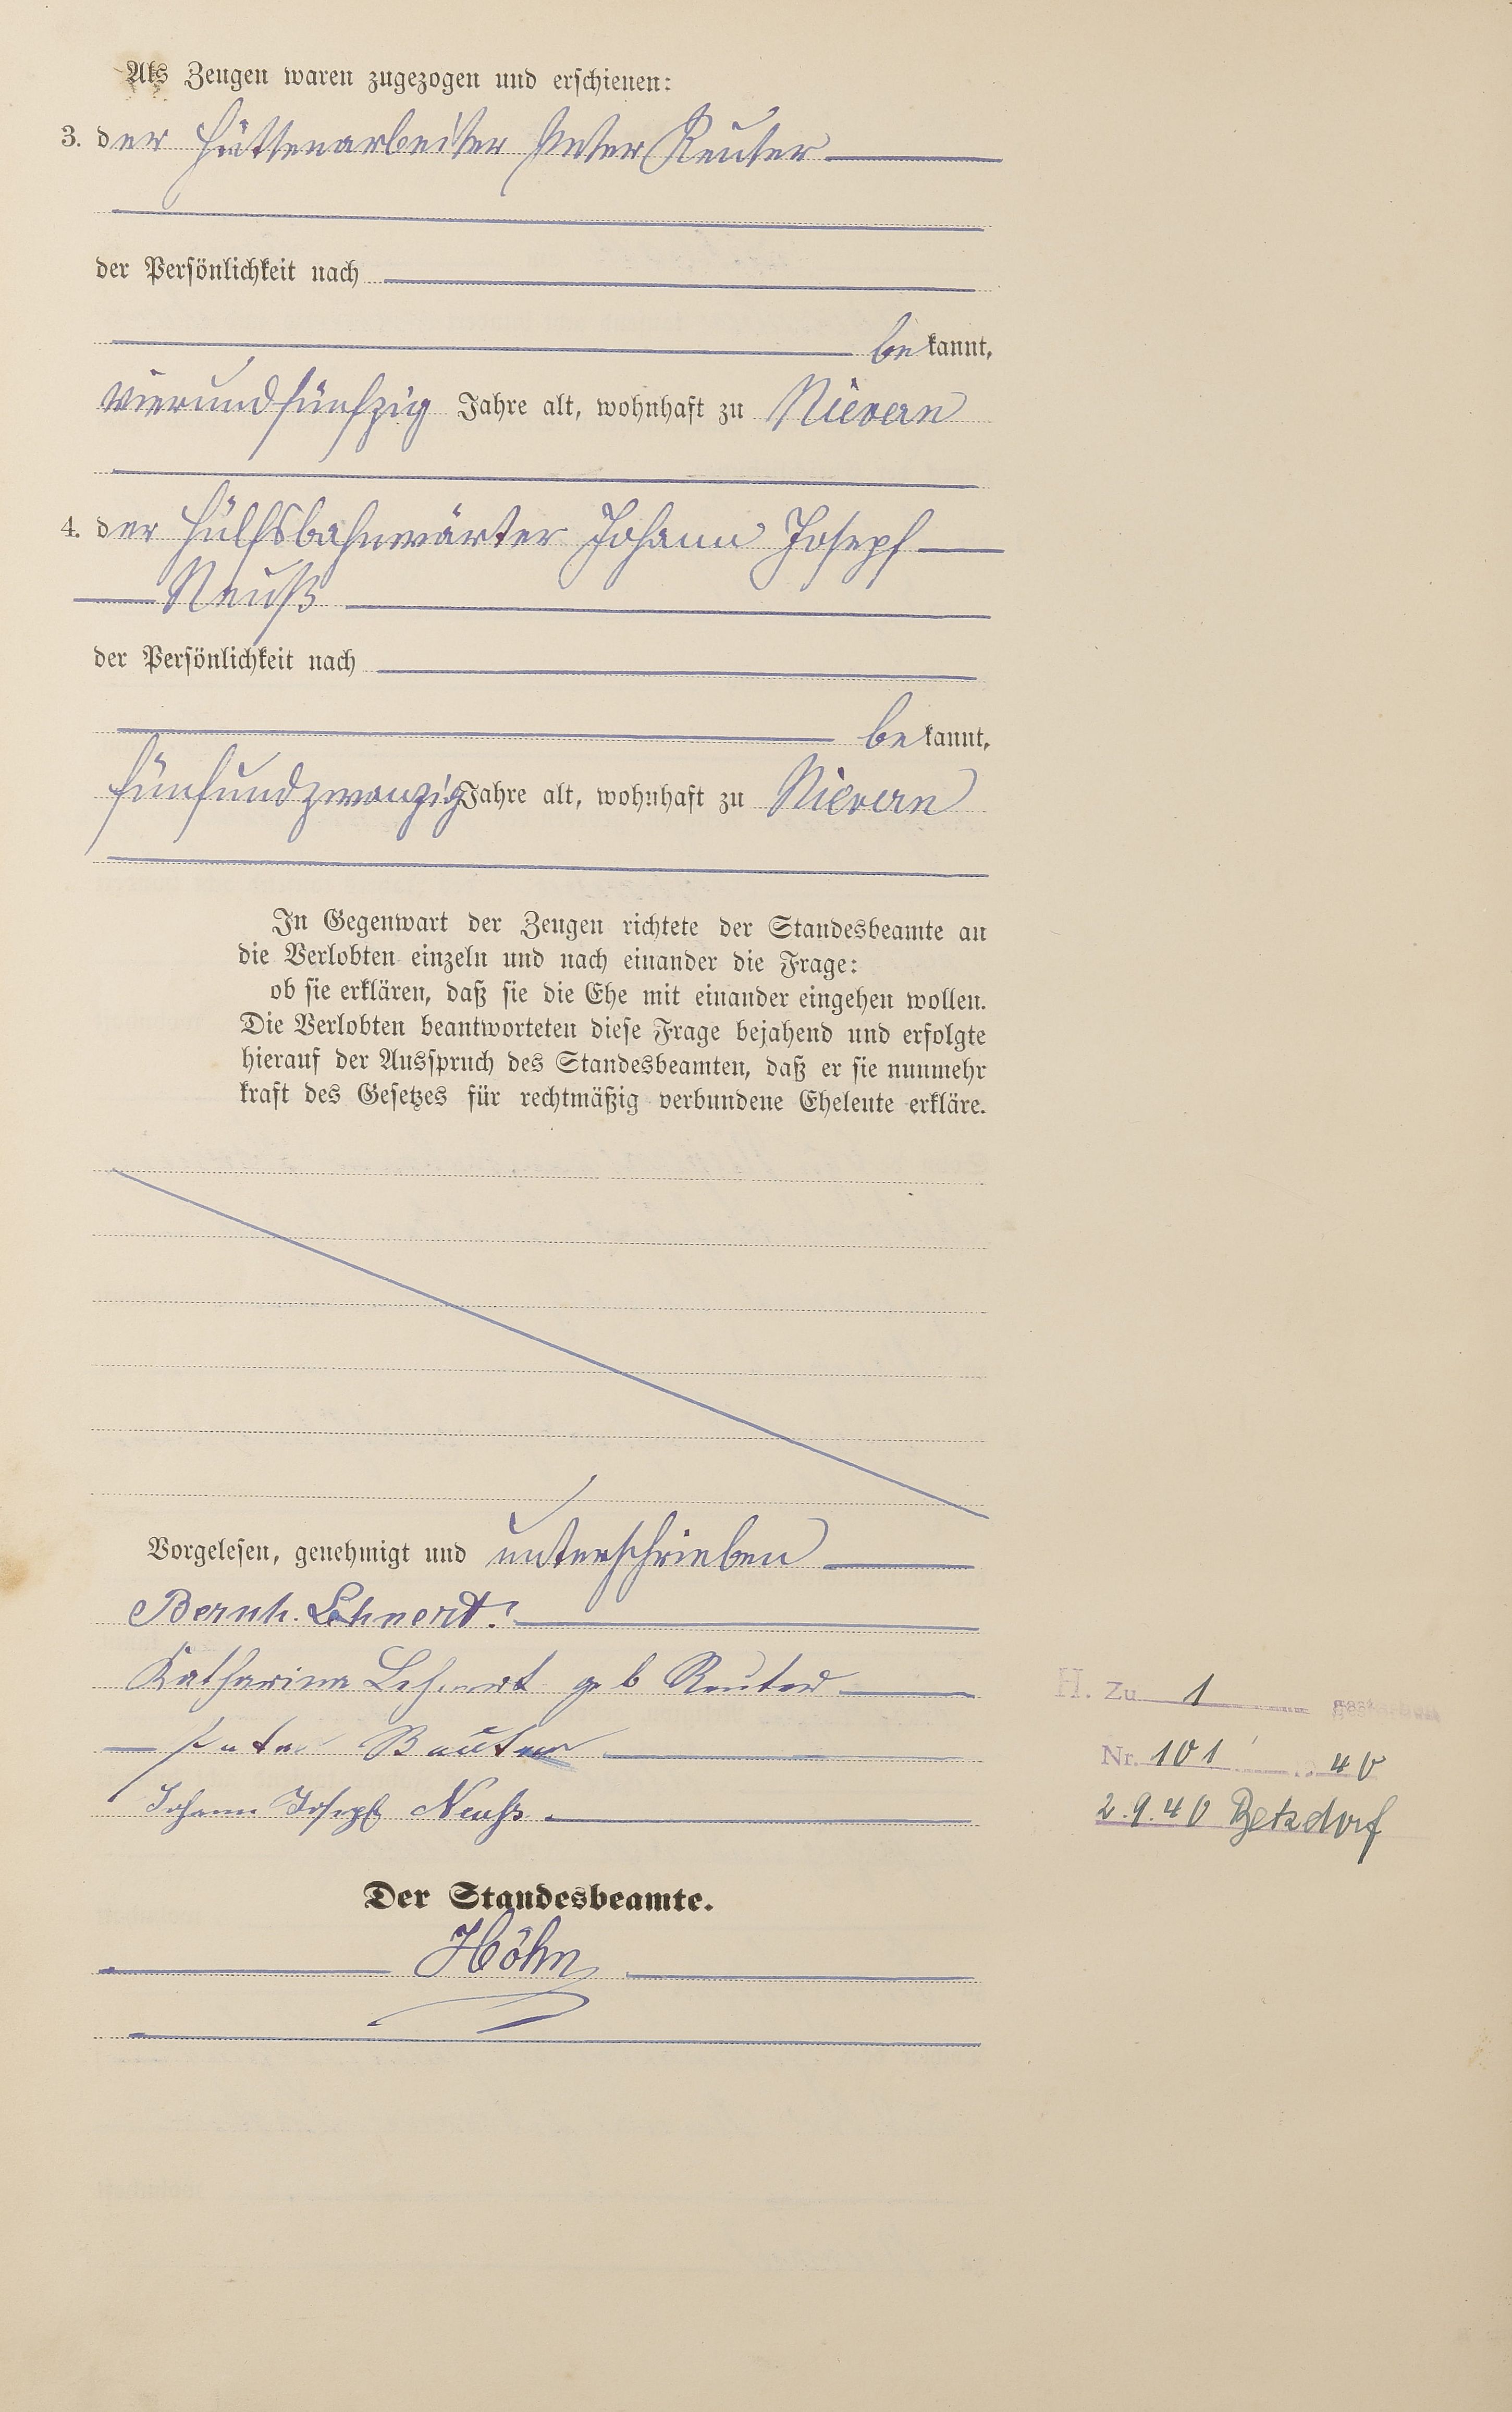 Als Zeugen waren zugezogen und erschienen:
3. der Hüttenarbeiter Peter Reuter
der Persönlichkeit nach
bekannt,
vierundfünfzig Jahre alt, wohnhaft zu Nievern
4. der Hülfsbahnwärter Johann Joseph
Neuß
der Persönlichkeit nach
bekannt,
fünfundzwanzig Jahre alt, wohnhaft zu Nievern
In Gegenwart der Zeugen richtete der Standesbeamte an
die Verlobten einzeln und nach einander die Frage:
ob sie erklären, daß sie die Ehe mit einander eingehen wollen.
Die Verlobten beantworteten diese Frage bejahend und erfolgte
hierauf der Ausspruch des Standesbeamten, daß er sie nunmehr
kraft des Gesetzes für rechtmäßig verbundene Eheleute erkläre.
Vorgelesen, genehmigt und unterschrieben
Bernh. Lehnert.
Katharina Lehnert geb Reuter
Peter
Johann Joseph Neuhs.
Der Standesbeamte.
Höhn
H. Zu 1
Nr. 101 40
2.9.40 Betzdorf